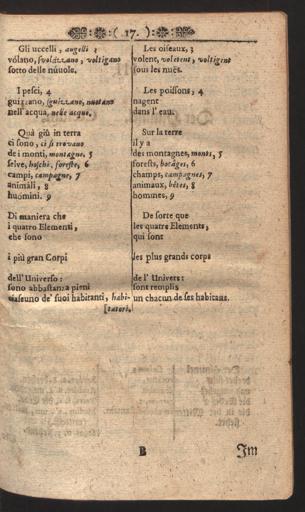 ( 17. )
Gli uccelli, augelli 3
vólano, svolázzano, voltigano
sotto delle núuole.
I pesci, 4
guizzano, sguizzano, nuotano
nell' acqua, nelle acque.
Quà giù in terra
ci sono, ci si trovano
de i monti, montagne, 5
selve, boschi, foreste, 6
campi, campagne, 7
animáli, 8
huómini. 9
Di maniera che
i quatro Elementi,
che sono
i più gran Corpi
dell' Universo:
sono abbastanza pieni
ciascuno de' suoi habitanti, habi-
[tatori.
Les oiseaux, 3
volent, voletent, voltigent
sous les nuës.
Les poissons, 4
nagent
dans l' eau.
Sur la terre
il y a
des montagnes, monts, 5
forests, bocàges, 6
champs, campagnes, 7
animaux, bêtes, 8
hommes. 9
De sorte que
les quatre Elements,
qui sont
les plus grands corps
de l' Univers:
sont remplis
un chacun de ses habitans.
B
Im